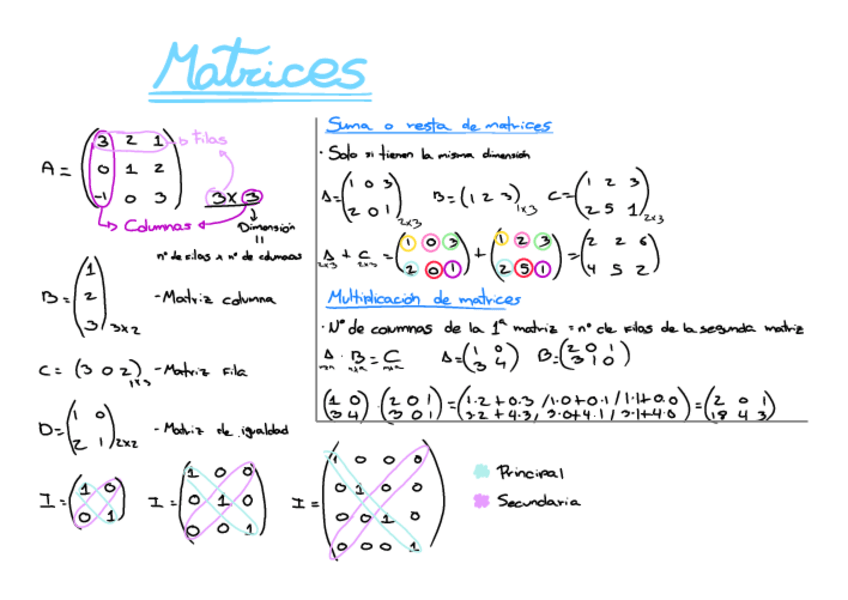 Matrices
A = (3 2 1
0 1 2
-1 0 3)
Filas
3 x 3
Columnas
Dimensión
=
nº de filas x nº de columnas
B = (1
2
3) 3x2
- Matriz columna
C = (3 0 2) 1x3 - Matriz Fila
D = (1 0
2 1) 2x2
- Matriz de igualdad
I = (1 0
0 1)
I = (1 0 0
0 1 0
0 0 1)
I = (1 0 0 0
0 1 0 0
0 0 1 0
0 0 0 1)
Principal
Secundaria
Suma o resta de matrices
· Solo si tienen la misma dimensión
A = (1 0 3
2 0 1) 2x3
B = (1 2 3) 1x3
C = (1 2 3
2 5 1) 2x3
A + C = (1 0 3 + (1 2 3 = (2 2 6
2x3 2x3 2 0 1) 2 5 1) 4 5 2)
Multiplicación de matrices
· Nº de columnas de la 1ª matriz = nº de filas de la segunda matriz
A · B = C
A = (1 0
3 4)
B = (2 0 1
3 1 0)
(1 0 · (2 0 1 = (1·2+0·3 / 1·0+0·1 / 1·1+0·0 = (2 0 1
3 4) 3 0 1) 3·2+4·3 / 3·0+4·1 / 3·1+4·0) 18 4 3)